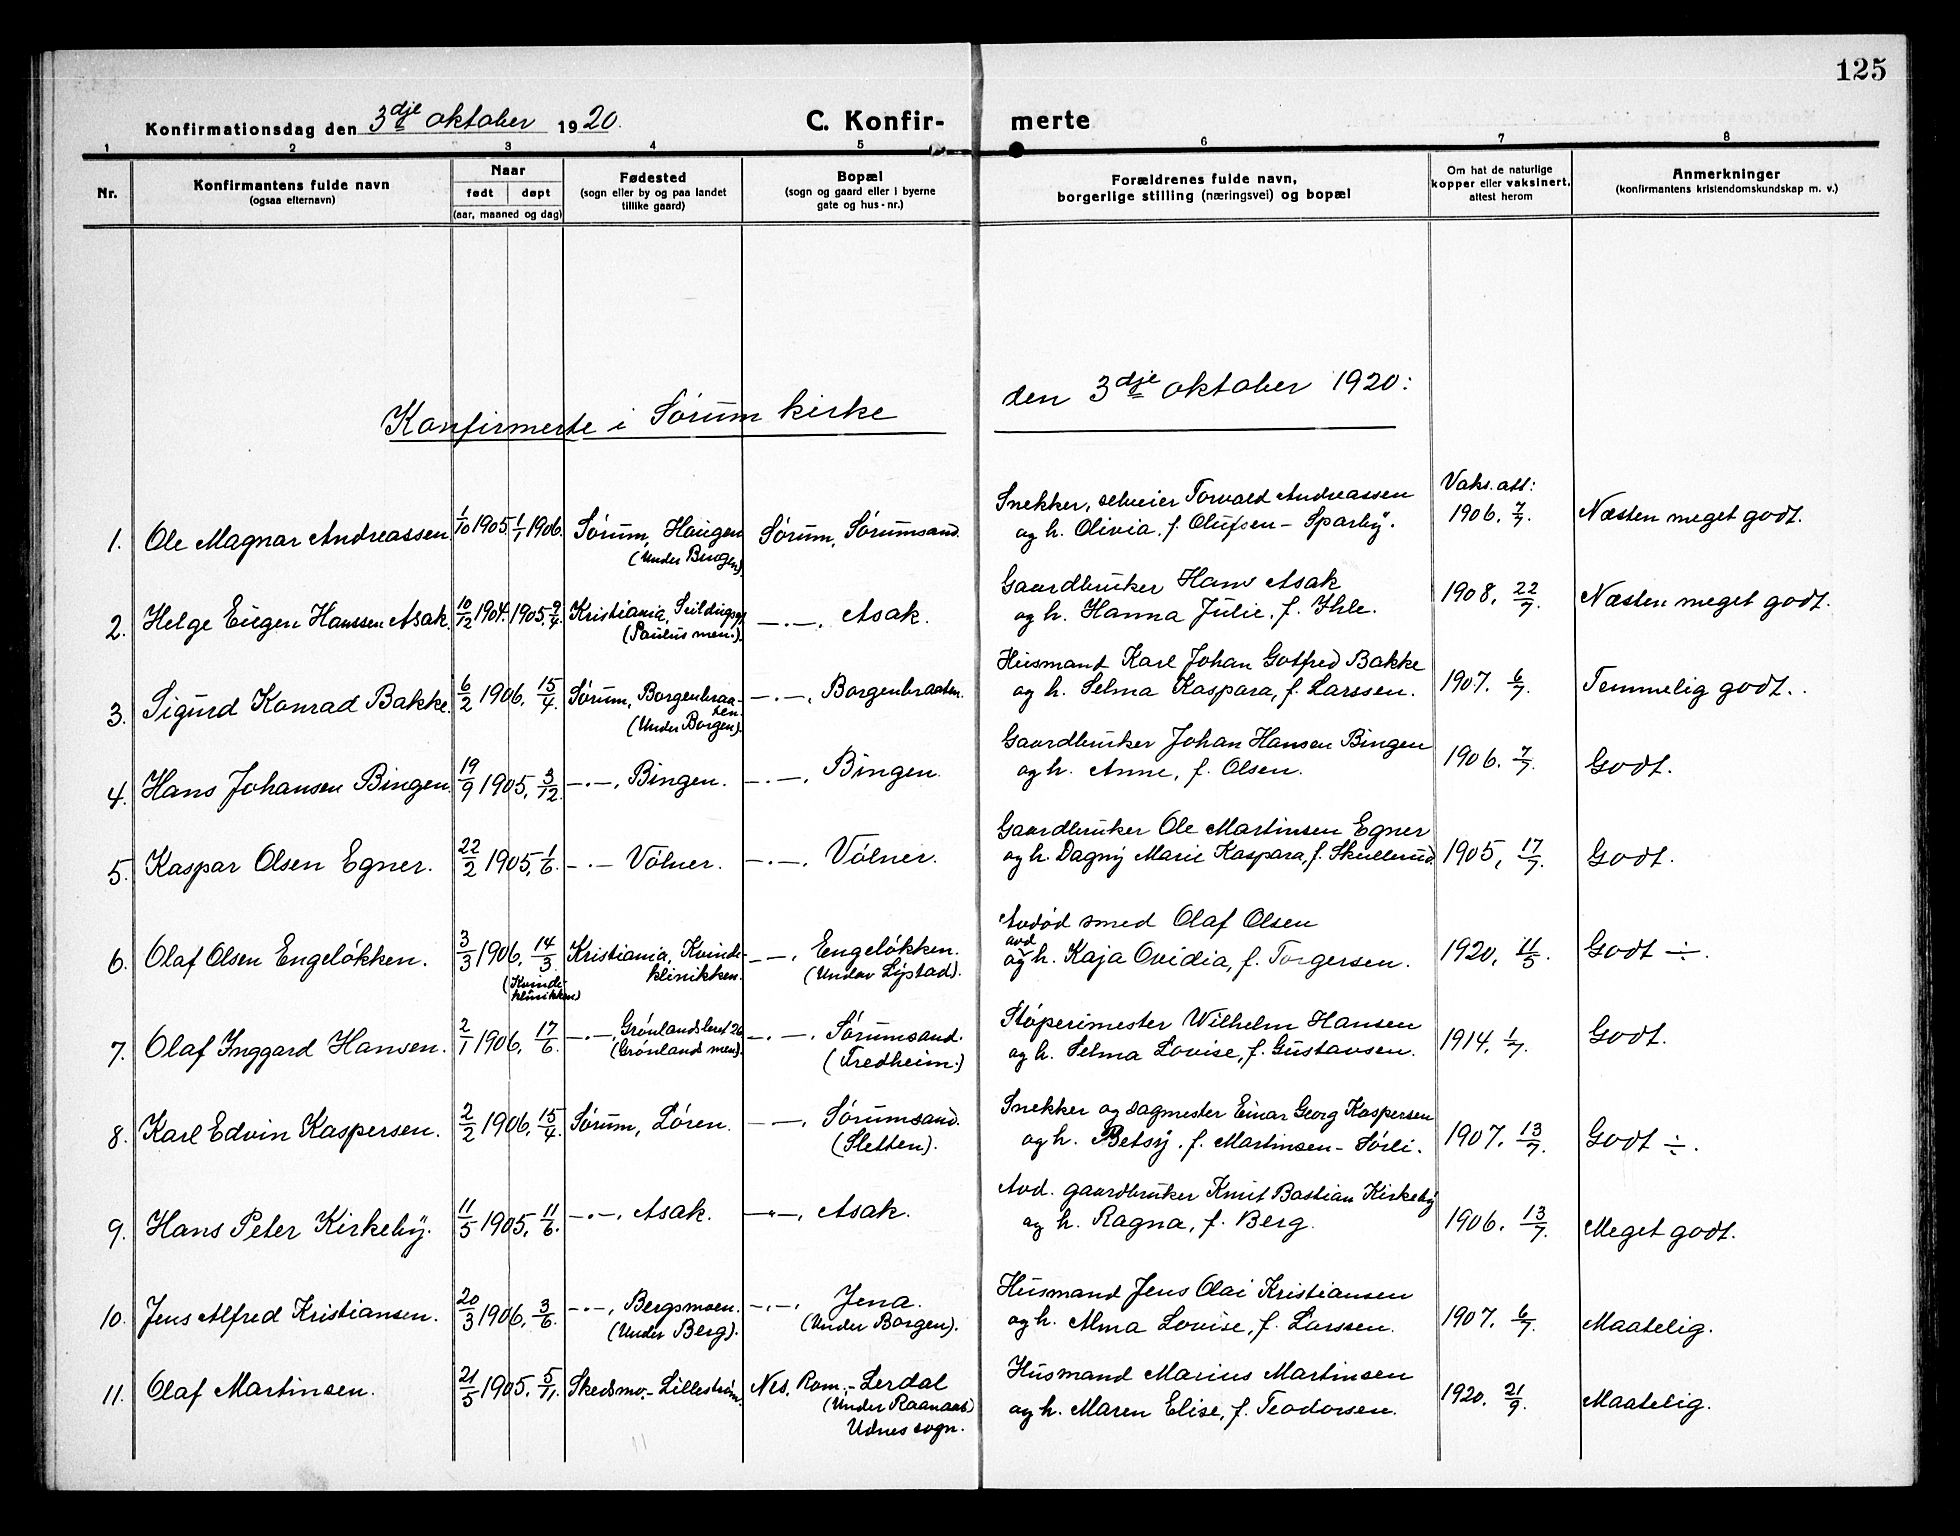 125
Konfirmationsdag den 3dje oktober 1920.
C. Konfir- merte
1 2 3 4 5 6 7 8
Nr.
Konfirmantens fulde navn
(ogsaa efternavn)
Naar
født døpt
(aar, maaned og dag)
Fødested
(sogn eller by og paa landet
tillike gaard)
Bopæl
(sogn og gaard eller i byerne
gate og hus-nr.)
Forældrenes fulde navn,
borgerlige stilling (næringsvei) og bopæl
Om hat de naturlige
kopper eller vaksinert,
attest herom
Anmerkninger
(konfirmantens kristendomskundskap m. v.)
Konfirmerte i Sørum kirke den 3dje oktober 1920:
1. Ole Magnar Andreassen 1/10 1905. 1/1 1906. Sørum, Haugen Sørum, Sørumsand. Snekker, selveier Torvald Andreassen Vaks. att: Næsten meget godt.
(Under Bingen) og h. Olivia, f. Olufsen - Sparby. 1906. 7/7.
2. Helge Eugen Hanssen Asak. 10/12 1904. 1905. 9/4 Kristiania, —.—, Asak. Gaardbruker Hans Asak 1908. 22/7. Næsten meget godt.
(Paulus men.). og h. Hanna Julie, f. Ihle.
3. Sigurd Konrad Bakke. 6/2 1906. 15/4 Sørum, Borgenbraa- —.—, Borgenbraaten. Husmand Karl Johan Gotfred Bakke 1907. 6/7. Temmelig godt.
ten. og h. Selma Kaspara, f. Larssen.
(Under Borgen).
4. Hans Johansen Bingen. 19/9 1905. 3/12. —.—, Bingen. —.—, Bingen. Gaardbruker Johan Hansen Bingen 1906. 7/7. Godt.
og h. Anne, f. Olsen.
5. Kaspar Olsen Egner. 22/2 1905. 1/6. —.— Vølner. —.—, Vølner. Gaardbruker Ole Martinsen Egner 1905, 17/7. Godt.
og h. Dagny Marie Kaspara, f. Skullerud.
6. Olaf Olsen Engeløkken. 3/3 1906. 14/3. Kristiania, Kvinde- —.—, Engeløkken. Avdød smed Olaf Olsen 1920, 11/5. Godt ÷.
(Kvinde- klinikken. (Under Lystad). avd
klinikken) og h. Kaja Ovidia, f. Torgersen.
7. Olaf Inggard Hansen. 2/1 1906. 17/6. —.—, Grønlandsleret 26 —.—, Sørumsand. Støperimester Wilhelm Hansen 1914. 1/7. Godt.
(Grønlands men). (Fredheim.) og h. Selma Lovise, f. Gustavsen.
8. Karl Edvin Kaspersen. 2/2 1906. 15/4. Sørum, Løren. —.—, Sørumsand. Snekker og sagmester Einar Georg Kaspersen 1907. 13/7. Godt ÷.
(Sletten). og h. Betsy, f. Martinsen - Sørli.
9. Hans Peter Kirkeby. 11/5 1905. 11/6. —.—, Asak. —.—, Asak. Avd. gaardbruker Knut Bastian Kirkeby 1906. 13/7. Meget godt.
og h. Ragna, f. Berg.
10. Jens Alfred Kristiansen. 20/3 1906. 3/6. —.—, Bergsmoen. —.—, Jena. Husmand Jens Olai Kristiansen 1907. 6/7. Maatelig.
(Under Berg). (Under Borgen). og h. Alma Lovise, f. Larssen.
11. Olaf Martinsen. 21/5 1905. 5/11. Skedsmo. - Lillestrøm. Nes, Rom. - Lerdal Husmand Marius Martinsen 1920. 21/9. Maatelig.
(Under Raanaas) og h. Maren Elise, f. Teodorsen.
Udnes sogn.
11